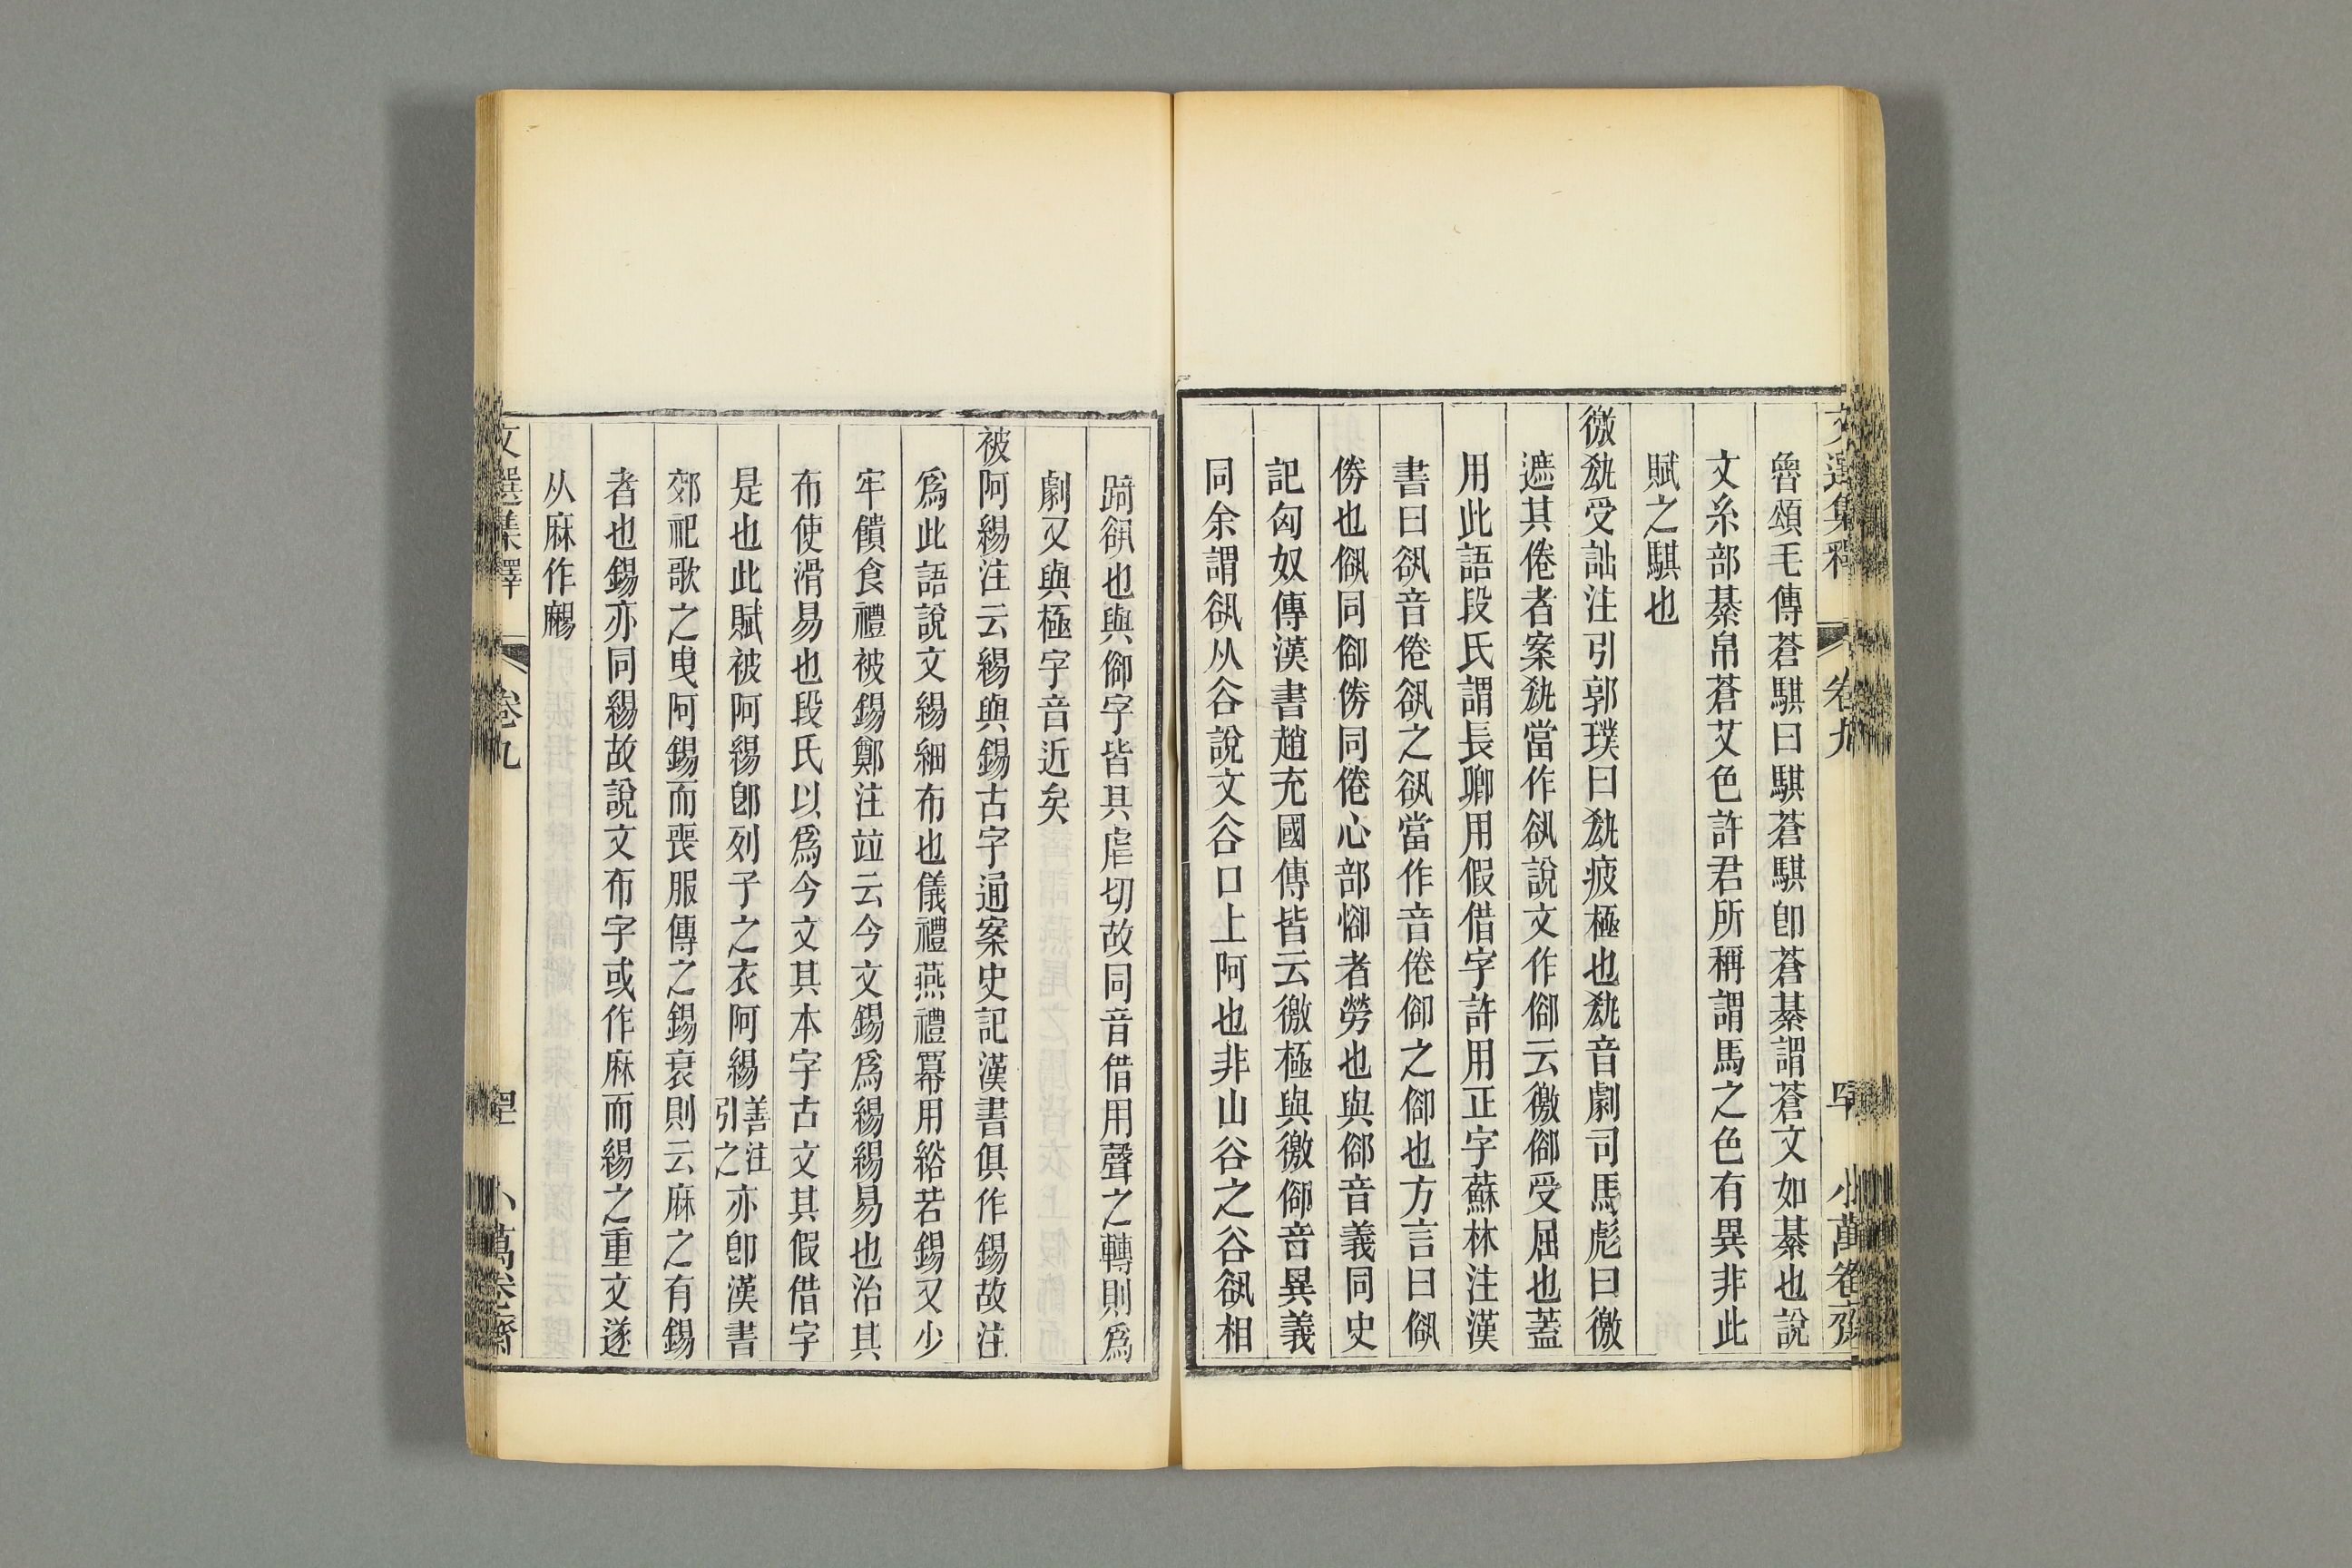 文選集釋 卷九 小萬卷齋
魯頌毛傳蒼騏曰騏蒼騏卽蒼綦謂蒼文如綦也說
文糸部綦帛蒼艾色許君所稱謂馬之色有異非此
賦之騏也
徼㕁受詘注引郭璞曰㕁疲極也㕁音劇司馬彪曰徼
遮其倦者案㕁當作㕁說文作㑢云徼㑢受屈也蓋
用此語段氏謂長卿用假借字許用正字蘇林注漢
書曰㕁音倦㕁之㕁當作音倦㑢之㑢也方言曰㑢
㑢也㑢同㑢㑢同倦心部㥛者勞也與㑢音義同史
記匈奴傳漢書趙充國傳皆云徼極與徼㑢音異義
同余謂㕁从谷說文谷口上阿也非山谷之谷㕁相
踦㕁也與㑢字皆其虐切故同音借用聲之轉則爲
劇又與極字音近矣
被阿緆注云緆與錫古字通案史記漢書俱作錫故注
爲此語說文緆細布也儀禮燕禮冪用綌若錫又少
牢饋食禮被錫鄭注竝云今文錫爲緆緆易也治其
布使滑易也段氏以爲今文其本字古文其假借字
是也此賦被阿緆卽列子之衣阿緆善注引之亦卽漢書
郊祀歌之曳阿錫而喪服傳之錫衰則云麻之有錫
者也錫亦同緆故說文布字或作麻而緆之重文遂
从麻作䴬
文選集釋 卷九 小萬卷齋